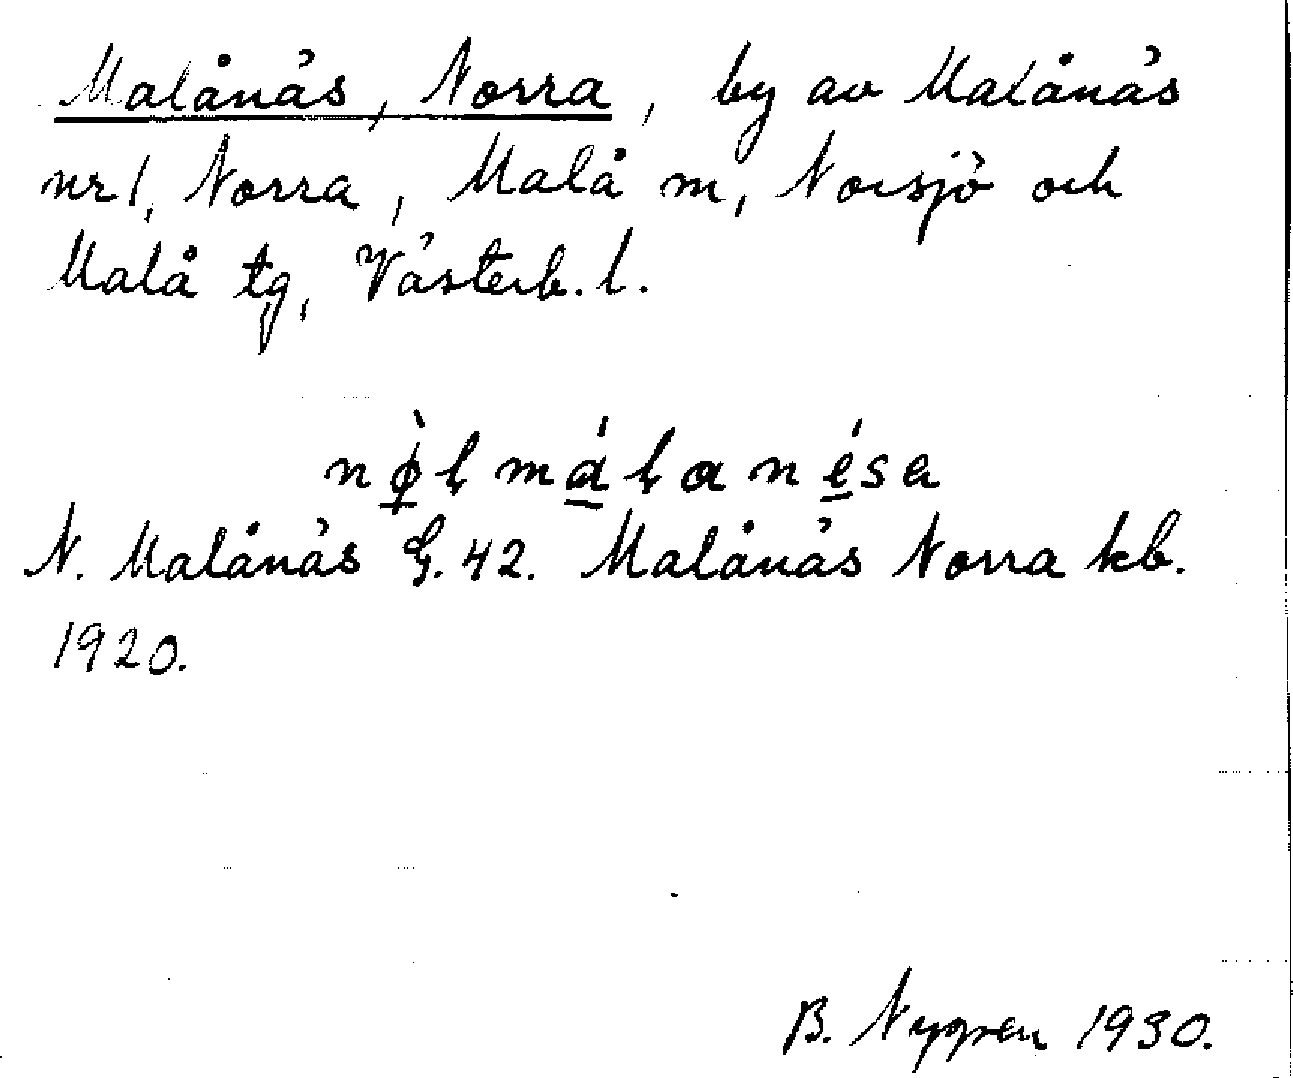 Malånäs, Norra, by av Malånäs
nr 1, Norra, Malå m, Norsjö och
Malå tg, Västerb. l.
N. Malånäs G. 42. Malånäs Norra kb.
1920.
B. Nygren 1930.